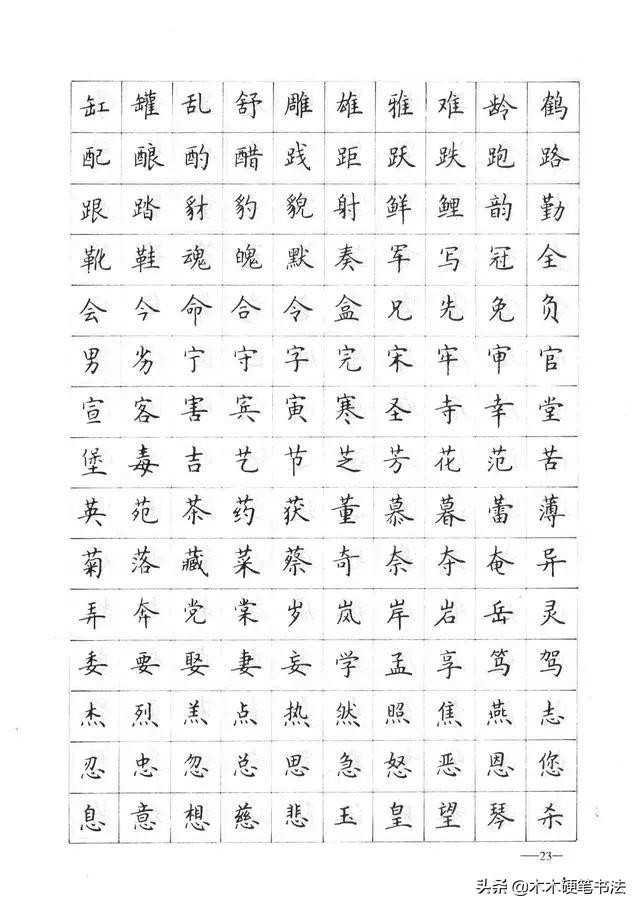 缸罐乱舒雕雄雅难龄鹤
配酿酌醋践距跃跌跑路
跟踏豺豹貌射鲜鲤韵勤
靴鞋魂魄默奏军写冠全
会今命合令盒兄先免负
男劣宁守字完宋牢审官
宣客害宾寅寒圣寺幸堂
堡毒吉艺节芝芳花范苦
英苑茶药获董慕暮蕾薄
菊落藏菜蔡奇奈夺奄异
弄奔党棠岁岚岸岩岳灵
委要娶妻妄学孟享笃驾
杰烈羔点热然照焦燕志
忍忠忽总思急怒恶恩您
息意想慈悲玉皇望琴杀
—23—
头条@木木硬笔书法